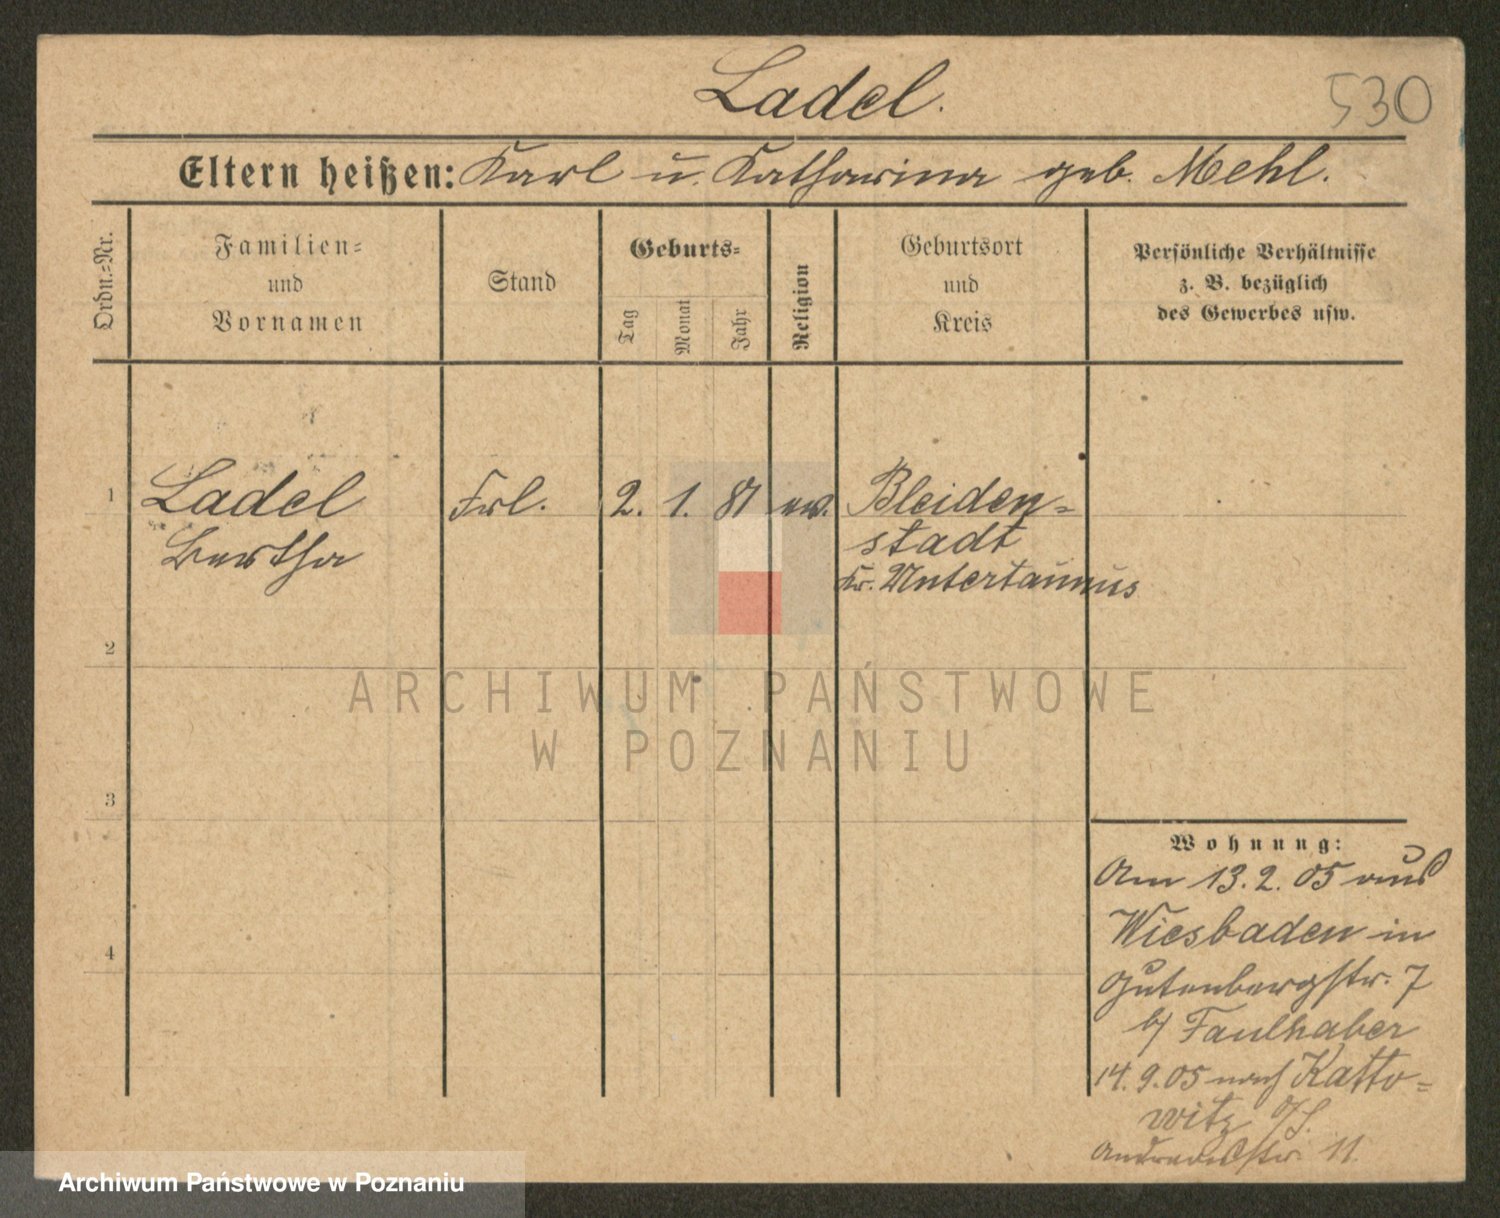 Ladel.
530
Eltern heißen: Karl u. Katharina geb. Mehl.
Ordn.=Nr.
Familien=
und
Vornamen
Stand
Geburts=
Tag
Monat
Jahr
Religion
Geburtsort
und
Kreis
Persönliche Verhältnisse
z. B. bezüglich
des Gewerbes usw.
1
Ladel
Bertha
Frl.
2. 1. 87
ev.
Bleiden=
stadt
Kr. Untertaunus
2
3
4
Wohnung:
Am 13.2.05 aus
Wiesbaden in
Gutenbergstr. 7
b/ Faulhaber
14.9.05 nach Katto=
witz O/S.
Andreasstr. 11.
ARCHIWUM PAŃSTWOWE
W POZNANIU
Archiwum Państwowe w Poznaniu